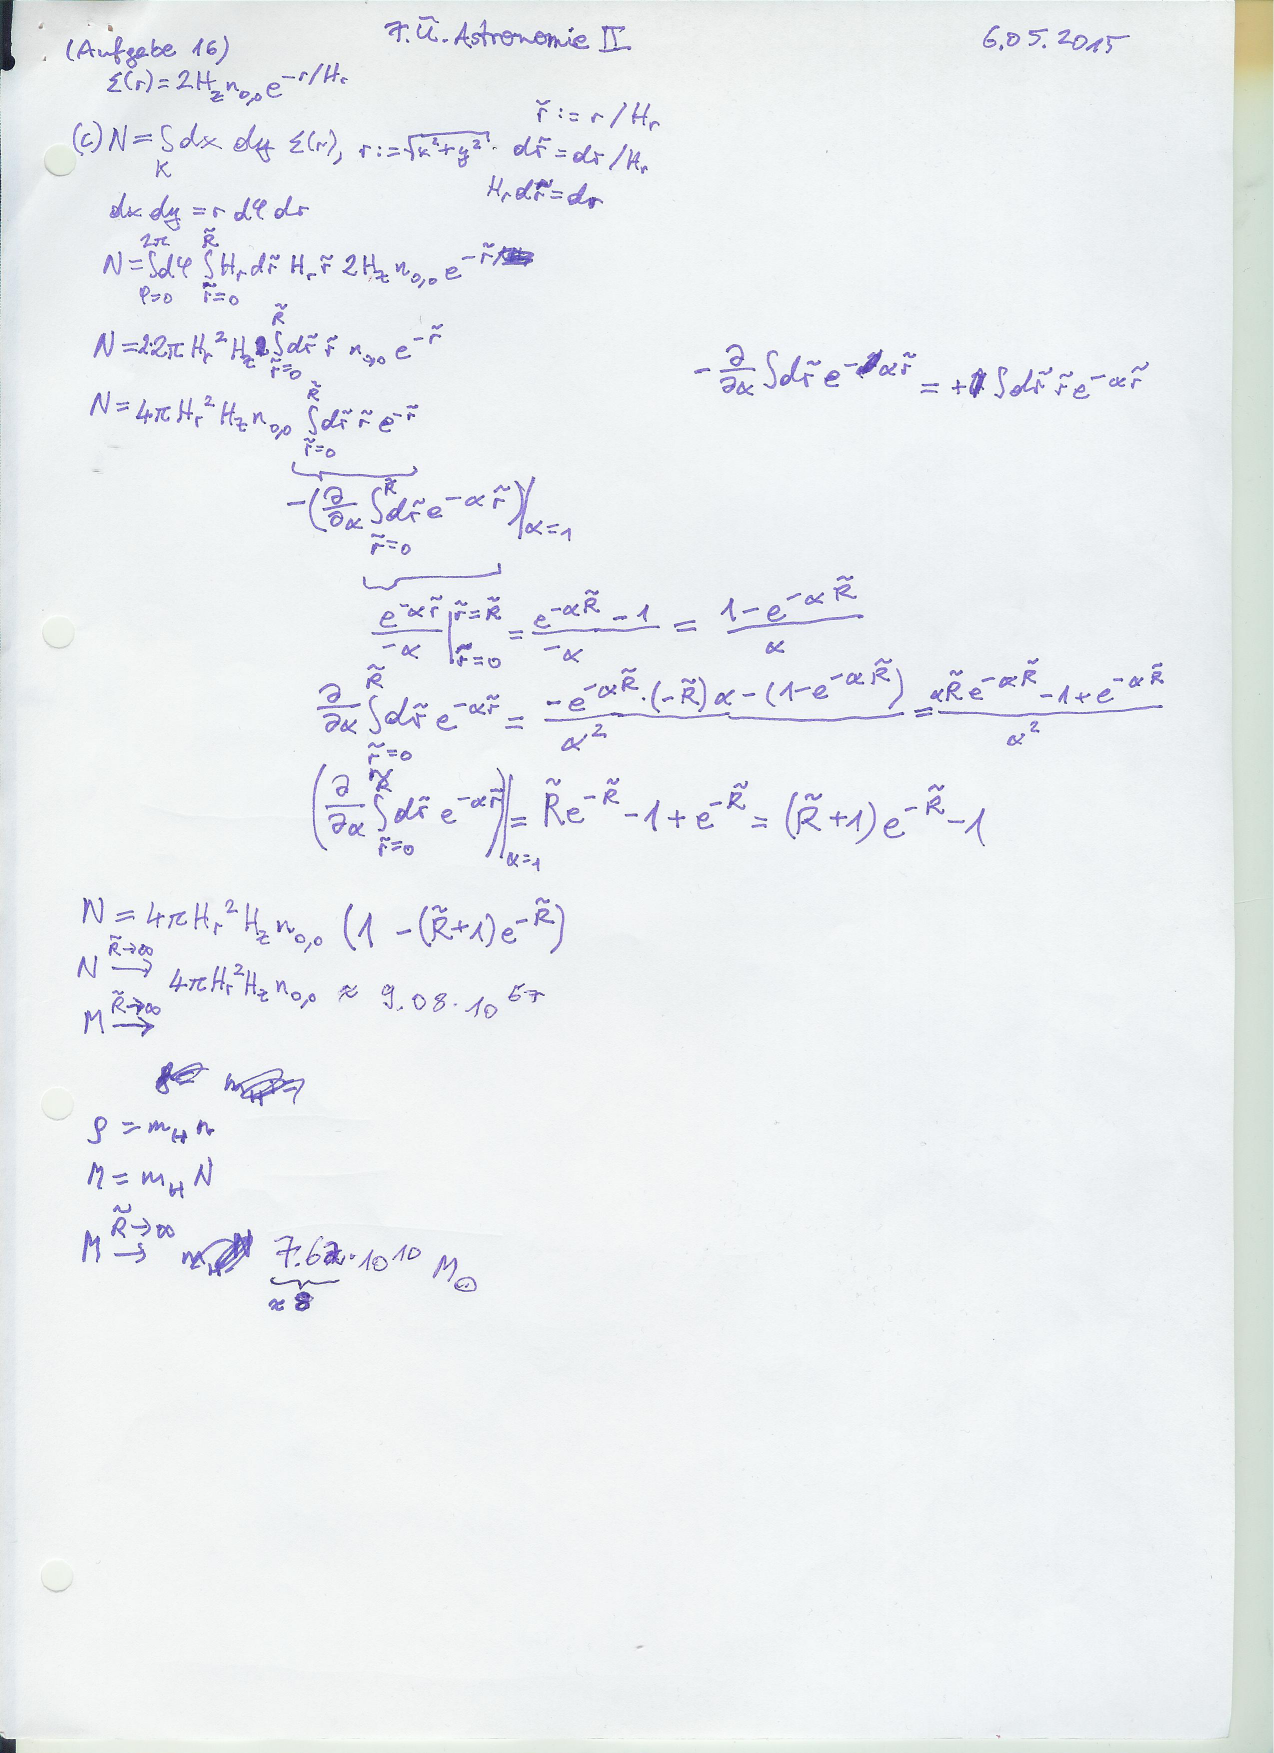 7. Ü. Astronomie II 6.05.2015
(Aufgabe 16)
Σ(r) = 2H_z n_{0,0} e^{-r/H_r}
r̃ := r/H_r
(c) N = ∫_K dx dy Σ(r), r := √(x²+y²). dr̃ = dr/H_r
H_r dr̃ = dr
dx dy = r dφ dr
N = ∫_{φ=0}^{2π} dφ ∫_{r̃=0}^{R̃} H_r dr̃ H_r r̃ 2H_z n_{0,0} e^{-r̃}
N = 2·2π H_r² H_z ∫_{r̃=0}^{R̃} dr̃ r̃ n_{0,0} e^{-r̃}
-∂/∂α ∫ dr̃ e^{-αr̃} = + ∫ dr̃ r̃ e^{-αr̃}
N = 4π H_r² H_z n_{0,0} ∫_{r̃=0}^{R̃} dr̃ r̃ e^{-r̃}
-(∂/∂α ∫_{r̃=0}^{R̃} dr̃ e^{-αr̃})|_{α=1}
e^{-αr̃}/-α |_{r̃=0}^{r̃=R̃} = (e^{-αR̃} - 1)/-α = (1 - e^{-αR̃})/α
∂/∂α ∫_{r̃=0}^{R̃} dr̃ e^{-αr̃} = (-e^{-αR̃}·(-R̃)α - (1-e^{-αR̃}))/α² = (αR̃e^{-αR̃} - 1 + e^{-αR̃})/α²
(∂/∂α ∫_{r̃=0}^{R̃} dr̃ e^{-αr̃})|_{α=1} = R̃e^{-R̃} - 1 + e^{-R̃} = (R̃+1)e^{-R̃} - 1
N = 4π H_r² H_z n_{0,0} (1 - (R̃+1)e^{-R̃})
N →^{R̃→∞} 4π H_r² H_z n_{0,0} ≈ 9.08·10^{67}
M →^{R̃→∞}
ρ = m_H n
M = m_H N
M →^{R̃→∞} 7.62·10^{10} M_⊙
≈ 8